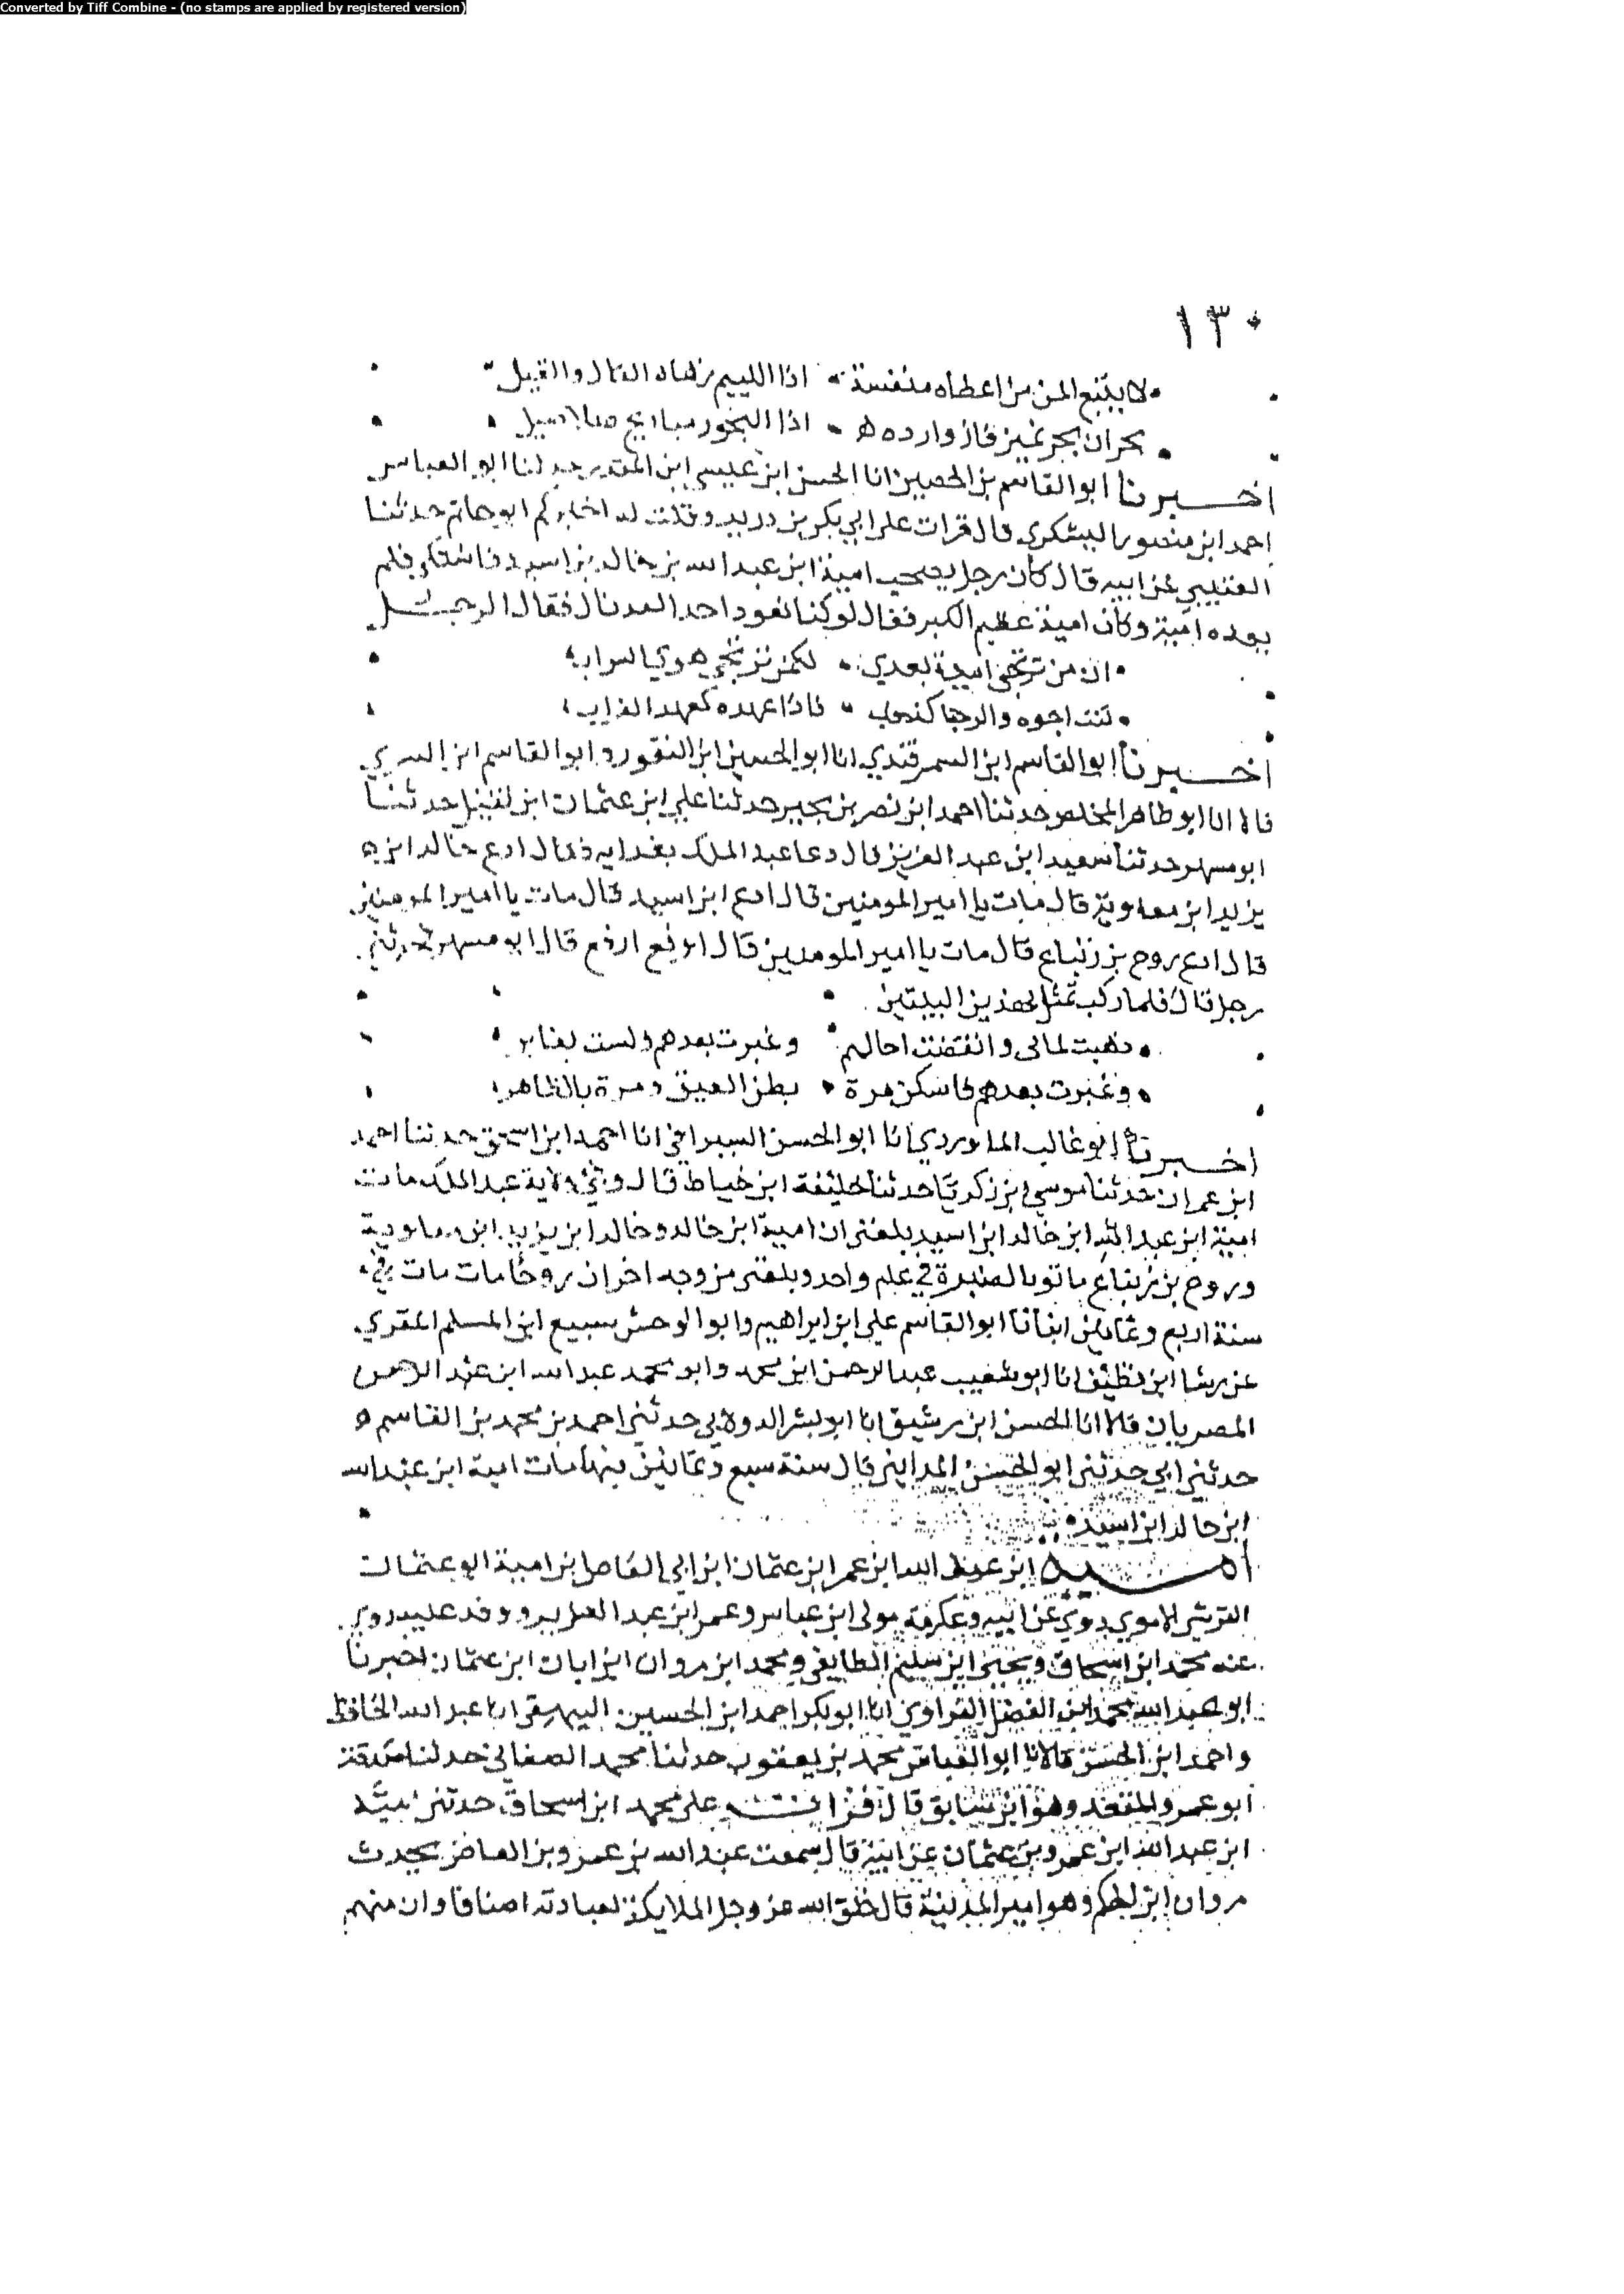 Converted by Tiff Combine - (no stamps are applied by registered version)
١٣٠
لا يتبع المن من اعطاه منفسة اذا اللييم زهاه القال والقيل
بحران بحر غيز فاز وارده اذا البخور
اخبرنا ابو القاسم بن الحصين انا الحسن ابن عيسي ابن المقتدر حدثنا ابو العباس
احمد ابن منصور اليشكري قال قرات علي ابي بكر بن دريد وقلت له اخبركم ابو حاتم حدثنا
العتيبي عن ابيه قال كان رجل يصحب امية ابن عبد الله بن خالد بن اسيد فاشتكي فلم
يعده امية وكان امية عظيم الكبر فقال لو كنا نعود احدا لعدناك فقال الرجل
ان من ترتجي امية بعدي لكمن ترتجي هوي السراب
كنت ارجوه والرجا كذوب فاذا عهده كعهد الغراب
اخبرنا ابو القاسم ابن السمرقندي انا ابو الحسين ابن النقور وابو القاسم ابن البسري
قالا انا ابو طاهر المخلص حدثنا احمد ابن نصر بن بجير حدثنا علي ابن عثمان ابن نفيل حدثنا
ابو مسهر حدثنا سعيد ابن عبد العزيز قال دعا عبد الملك بغدايه فقال ادع خالد ابن
يزيد ابن معاوية قال مات يا امير المومنين قال ادع ابن اسيد قال مات يا امير المومنين
قال ادع روح بن زنباع قال مات يا امير المومنين قال ارفع ارفع قال ابو مسهر فحدثني
رجل قال فلما ركب تمثل بهذين البيتين
ذهبت لماتي وانقضت اجالهم وغبرت بعدهم ولست بغابر
وغبرت بعدهم فاسكن مرة بطن العقيق ومرة بالظاهر
اخبرنا ابو غالب الماوردي انا ابو الحسن السيرافي انا احمد ابن اسحق حدثنا احمد
ابن عمران حدثنا موسي ابن زكريا حدثنا خليفة ابن خياط قال وفي ولاية عبد الملك مات
امية ابن عبد الله ابن خالد ابن اسيد بلغني ان امية ابن خالد وخالد ابن يزيد ابن معاوية
وروح بن زنباع ماتوا بالصنبرة في علم واحد وبلغني من وجه اخر ان روحا مات مات في
سنة اربع وثمانين انبانا ابو القاسم علي ابن ابراهيم وابو الوحش سبيع ابن المسلم المقري
عن رشا ابن نظيف انا ابو شعيب عبد الرحمن ابن محمد وابو محمد عبد الله ابن عبد الرحمن
المصريان قالا انا الحسن ابن رشيق انا ابو بشر الدولابي حدثني احمد بن محمد بن القاسم
حدثني ابي حدثني ابو الحسن المدايني قال سنة سبع وثمانين فيها مات امية ابن عبد الله
ابن خالد ابن اسيد
امية ابن عبد الله ابن عمر ابن عثمان ابن ابي العاص ابن امية ابو عثمان
القرشي الاموي روي عن ابيه وعكرمة مولي ابن عباس وعمر ابن عبد العزيز ووفد عليه روي
عنه محمد ابن اسحاق ويحيي ابن سليم الطايفي ومحمد ابن مروان ابن ابان ابن عثمان اخبرنا
ابو عبد الله محمد ابن الفضل الفراوي انا ابو بكر احمد ابن الحسين البيهقي انا عبد الله الحافظ
واحمد ابن الحسن قالا انا ابو العباس محمد بن يعقوب حدثنا محمد الصغاني حدثنا صدقة
ابو عمرو المقعد وهو ابن سابق قال قرات علي محمد ابن اسحاق حدثني امية
ابن عبد الله ابن عمرو بن عثمان عن ابيه قال سمعت عبد الله بن عمرو بن العاص يحدث
مروان ابن الحكم وهو امير المدينة قال خلق الله عز وجل الملايكة لعبادته اصنافا وان منهم